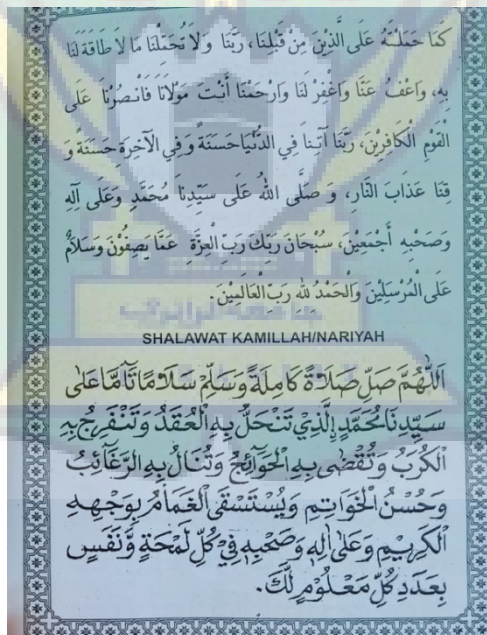 كَمَا حَمَلْتَهُ عَلَى الَّذِيْنَ مِنْ قَبْلِنَا، رَبَّنَا وَلَا تُحَمِّلْنَا مَا لَا طَاقَةَ لَنَا
بِهِ، وَاعْفُ عَنَّا وَاغْفِرْ لَنَا وَارْحَمْنَا أَنْتَ مَوْلَانَا فَانْصُرْنَا عَلَى
الْقَوْمِ الْكَافِرِيْنَ، رَبَّنَا آتِنَا فِي الدُّنْيَا حَسَنَةً وَفِي الْآخِرَةِ حَسَنَةً وَ
قِنَا عَذَابَ النَّارِ، وَ صَلَّى اللهُ عَلَى سَيِّدِنَا مُحَمَّدٍ وَعَلَى آلِهِ
وَصَحْبِهِ أَجْمَعِيْنَ، سُبْحَانَ رَبِّكَ رَبِّ الْعِزَّةِ عَمَّا يَصِفُوْنَ وَسَلَامٌ
عَلَى الْمُرْسَلِيْنَ وَالْحَمْدُ لِلهِ رَبِّ الْعَالَمِيْنَ.
SHALAWAT KAMILLAH/NARIYAH
اَللّٰهُمَّ صَلِّ صَلَاةً كَامِلَةً وَسَلِّمْ سَلَامًا تَآمًّا عَلٰى
سَيِّدِنَا مُحَمَّدٍ اِلَّذِيْ تَنْحَلُّ بِهِ الْعُقَدُ وَتَنْفَرِجُ بِهِ
الْكُرَبُ وَتُقْضٰى بِهِ الْحَوَآئِجُ وَتُنَالُ بِهِ الرَّغَآئِبُ
وَحُسْنُ الْخَوَاتِمِ وَيُسْتَسْقَى الْغَمَامُ بِوَجْهِهِ
الْكَرِيْمِ وَعَلٰى اٰلِهِ وَصَحْبِهِ فِيْ كُلِّ لَمْحَةٍ وَّنَفَسٍ
بِعَدَدِ كُلِّ مَعْلُوْمٍ لَّكَ.